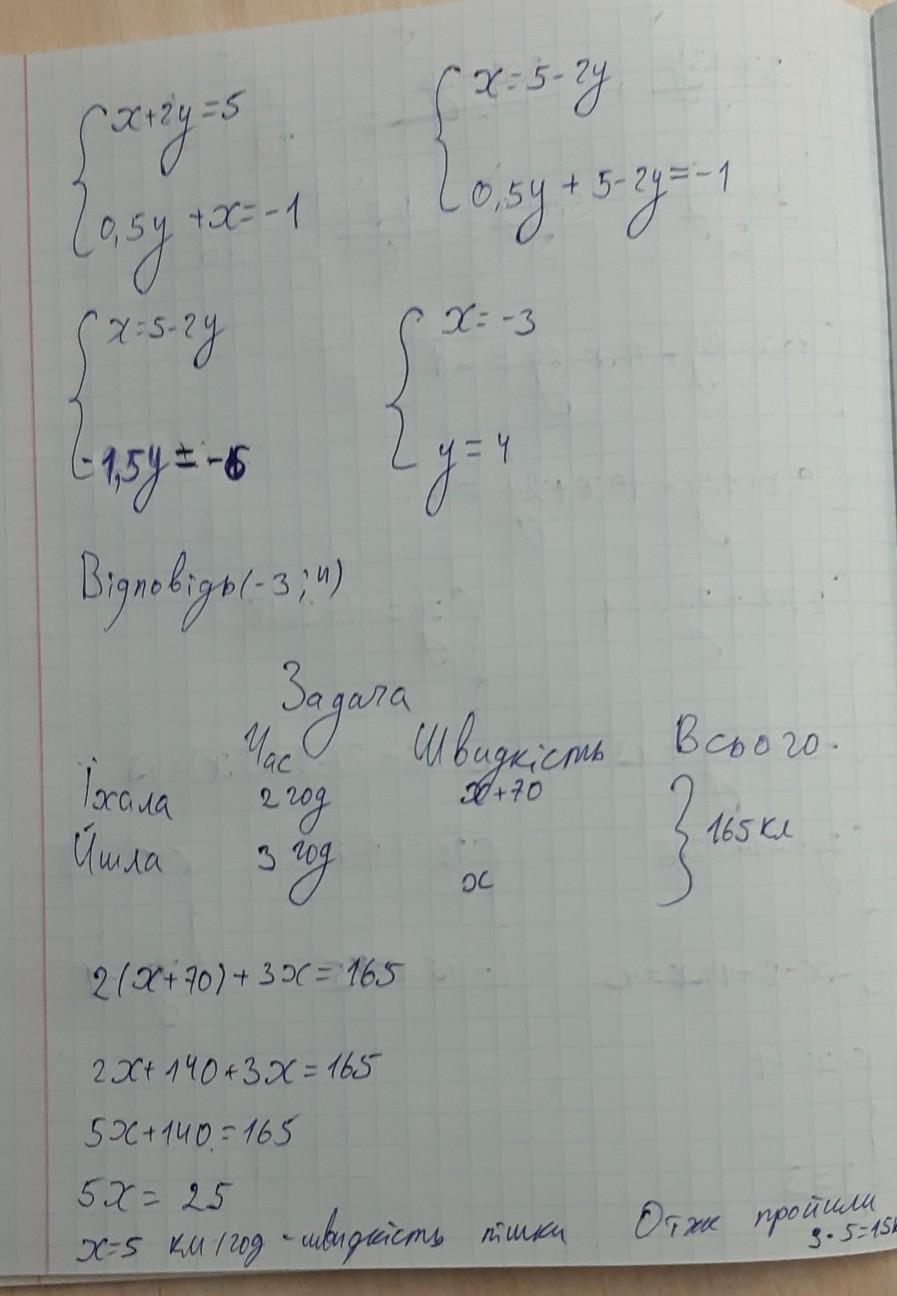 x+2y=5
0,5y+x=-1
x=5-2y
0,5y+5-2y=-1
x=5-2y
-1,5y=-6
x=-3
y=4
Відповідь(-3;4)
Задача
Час Швидкість Всього.
Їхала 2 год x+70
Йшла 3 год x
165 км
2(x+70)+3x=165
2x+140+3x=165
5x+140=165
5x=25
x=5 км/год - швидкість пішки Отже пройшли
3·5=15